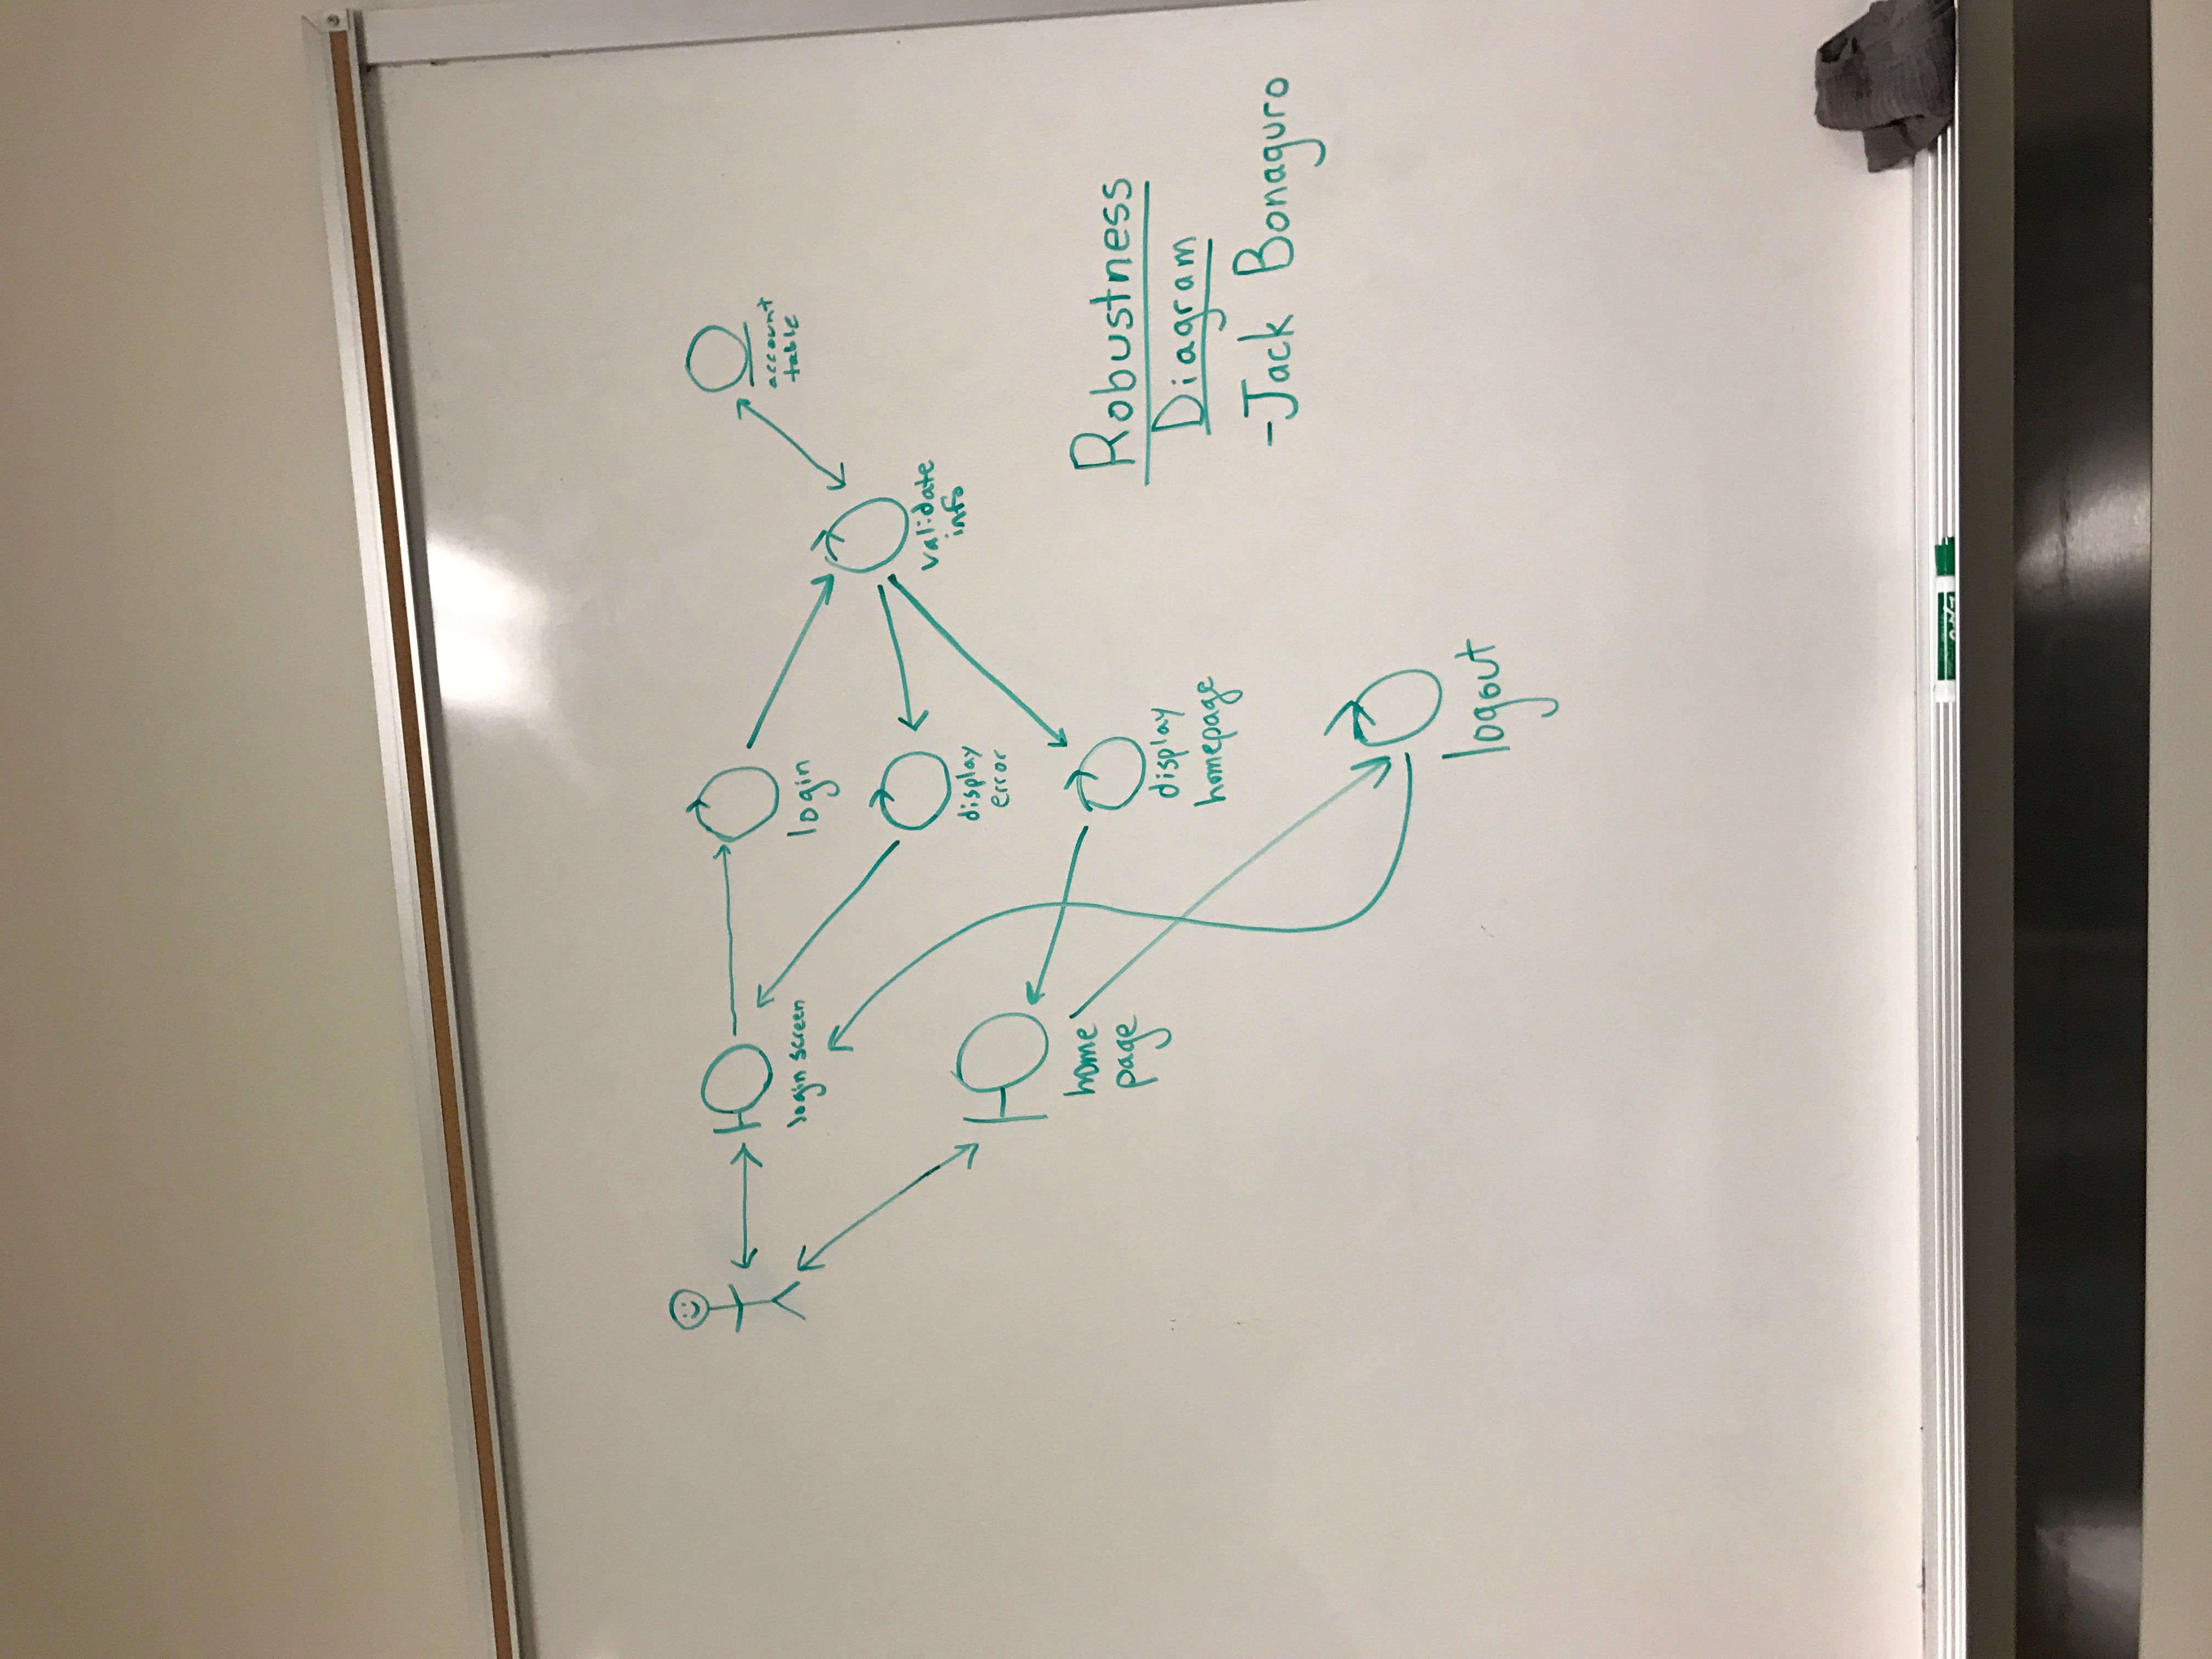 login screen
login
account
table
validate
info
display
error
home
page
display
homepage
Robustness
Diagram
-Jack Bonaguro
logout